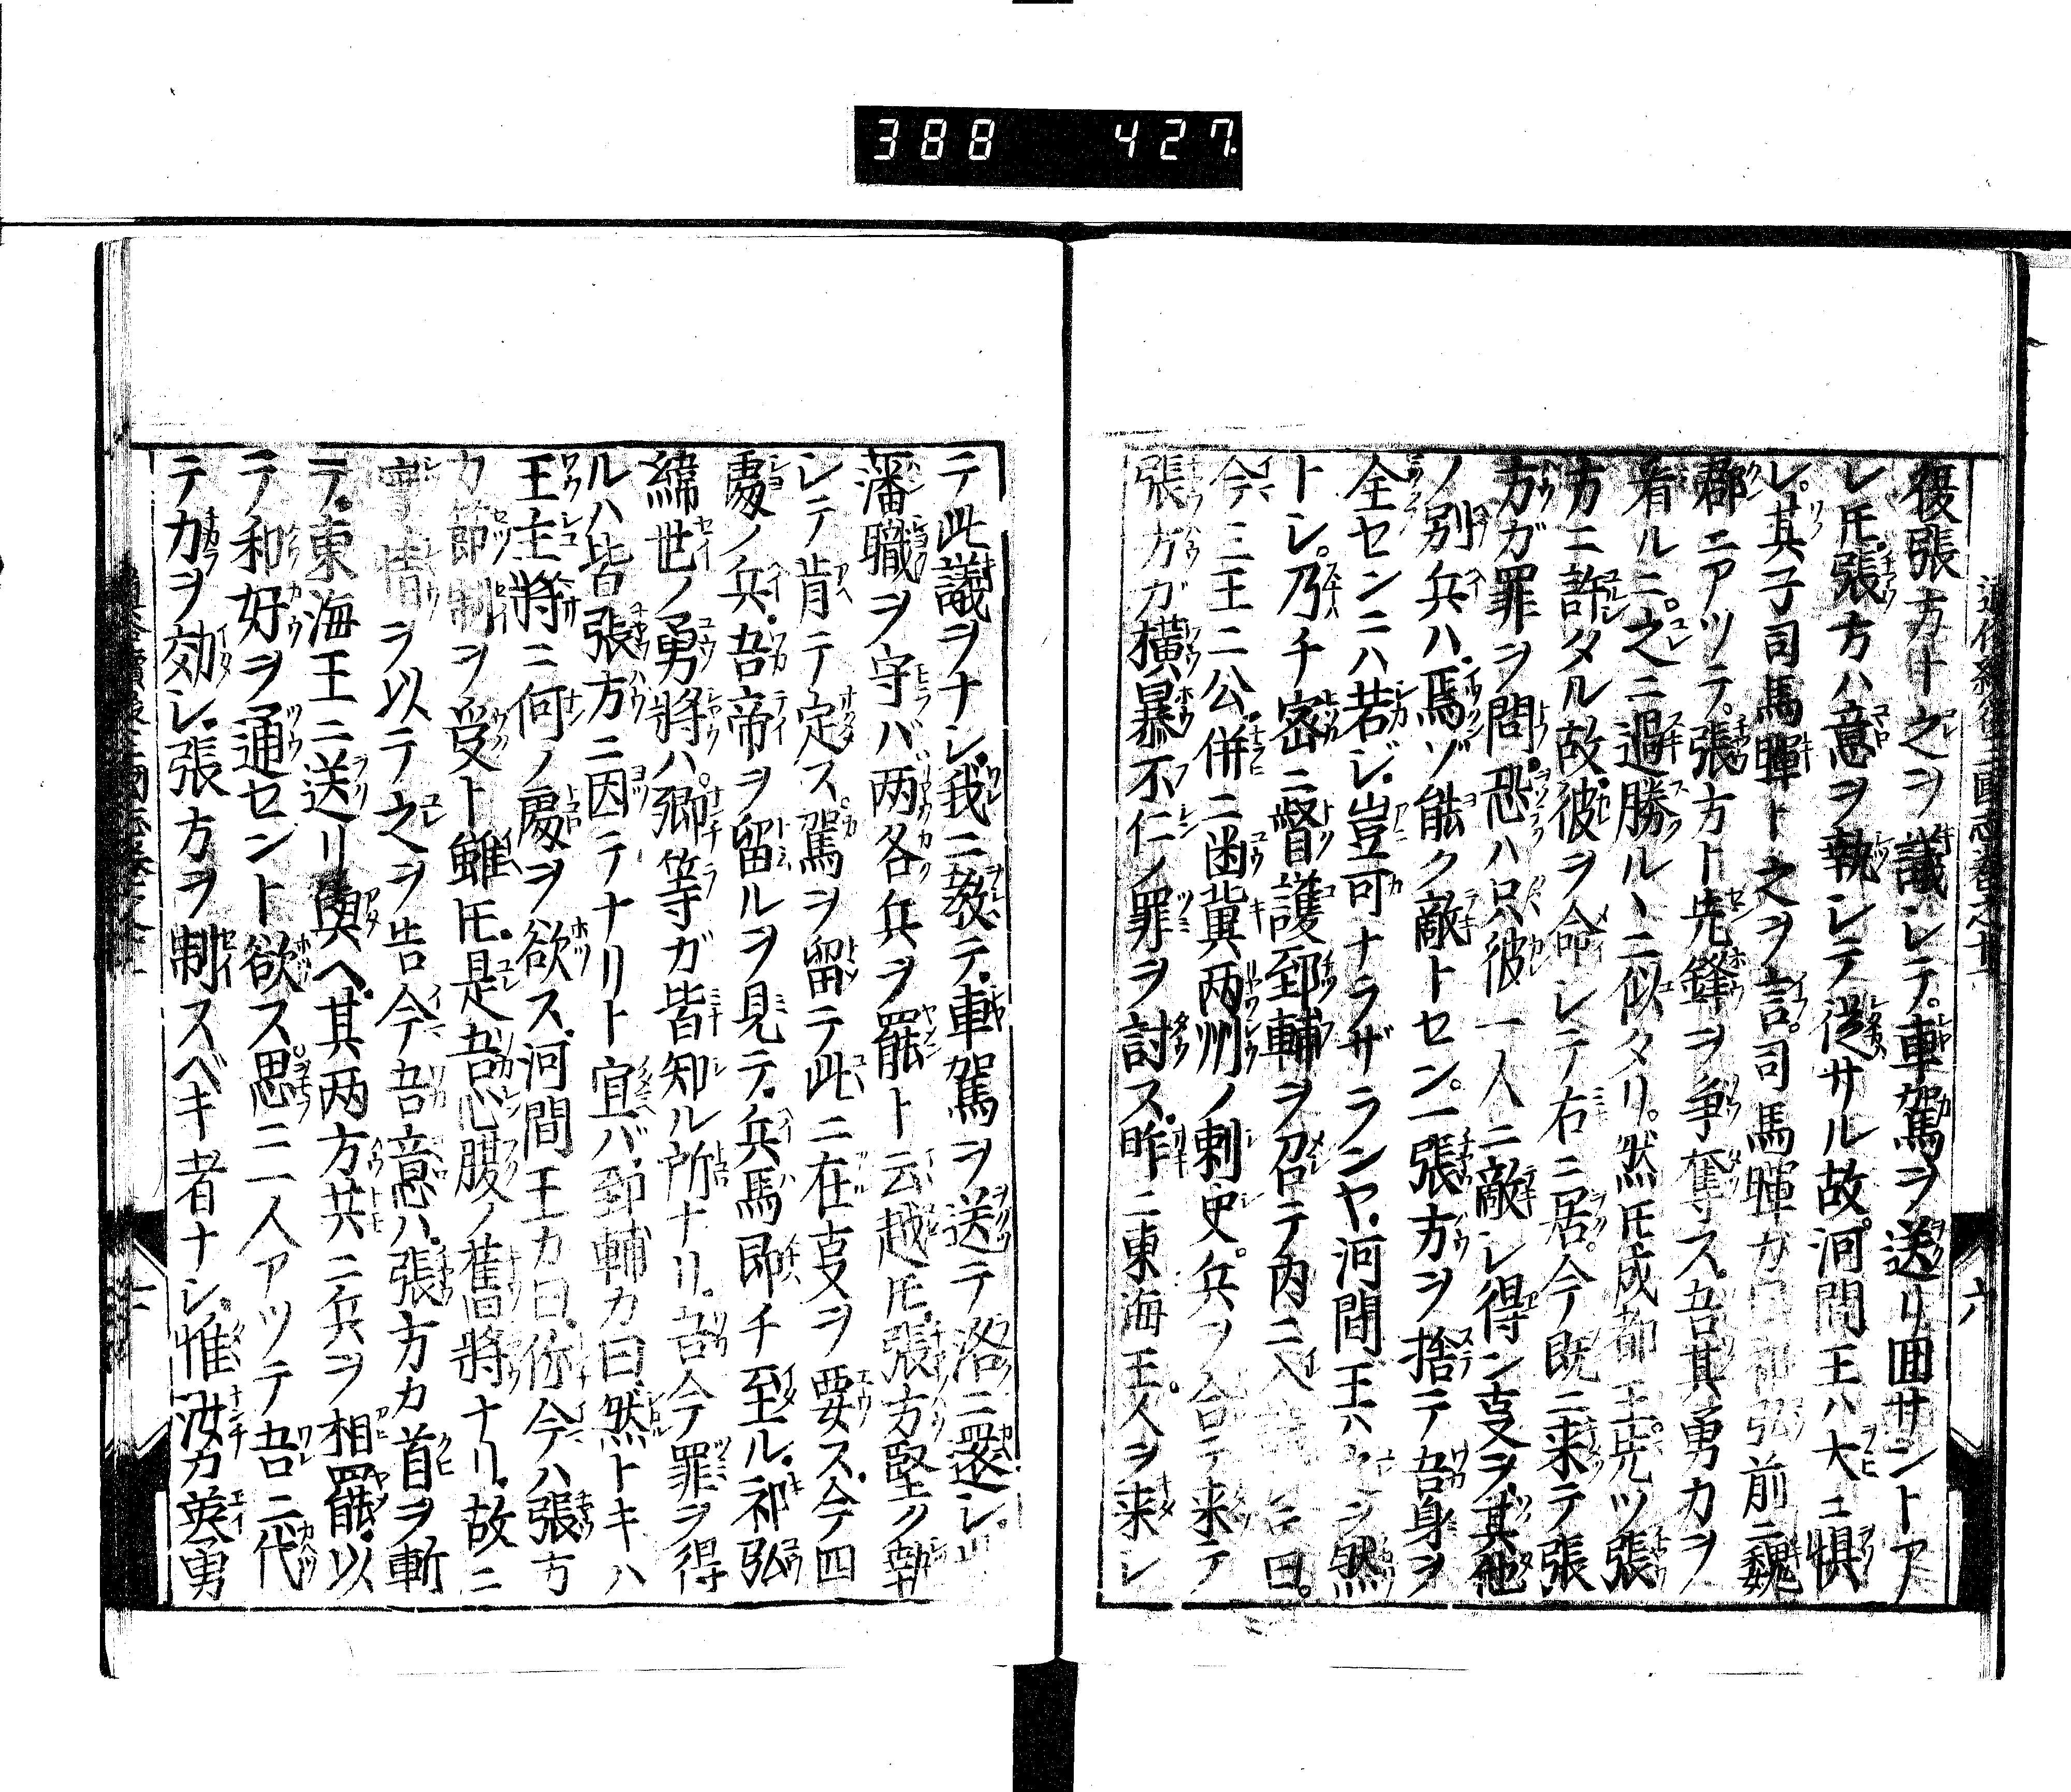 388 427
後張方ト之ヲ議シテ車駕ヲ送リ囬サントア
レ𪜈張方ハ意ヲ執シテ從サル故河間王ハ大ニ惧
レ其子司馬暉ト之ヲ言司馬暉カ曰祁弘前ニ魏
郡ニアツテ張方ト先鋒ヲ争奪ス吾其勇力ヲ
看ルニ之ニ過勝ルヽニ似タリ然𪜈成都王先ツ張
方ニ許タル故彼ヲ命シテ右ニ居今既ニ来テ張
方ガ罪ヲ問恐ハ只彼一人ニ敵シ得ン叓ヲ其他
ノ別兵ハ焉ゾ能ク敵トセン一張方ヲ捨テ吾身ヲ
全センニハ若ジ豈可ナラザランヤ河間王ハ ヲ然
トシ乃チ密ニ督護郅輔ヲ召テ内ニ入 ニ曰
今三王二公併ニ幽冀两州ノ刺史兵ヲ合テ来テ
張方ガ横暴不仁ノ罪ヲ討ス昨ニ東海王人ヲ来シ
六
テ此議ヲナシ我ニ教テ車駕ヲ送テ洛ニ還シ
藩職ヲ守バ两各兵ヲ罷ト云越𪜈張方堅ク執
シテ肯テ定ス駕ヲ留テ此ニ在叓ヲ要ス今四
處ノ兵吾帝ヲ留ルヲ見テ兵馬即チ至ル祁弘
締世ノ勇將ハ卿等ガ皆知ル所ナリ吾今罪ヲ得
ルハ皆張方ニ因テナリト宜バ郅輔カ曰然トキハ
王主將ニ何ノ處ヲ欲ス河間王カ曰你今ハ張方
カ節制ヲ受ト雖𪜈是吾心腹ノ舊將ナリ故ニ
情ヲ以テ之ヲ告今吾意ハ張方カ首ヲ斬
テ東海王ニ送リ與ヘ其两方共ニ兵ヲ相罷以
テ和好ヲ通セント欲ス思ニ一人アツテ吾ニ代
テ力ヲ効シ張方ヲ制スベキ者ナシ惟汝カ英勇